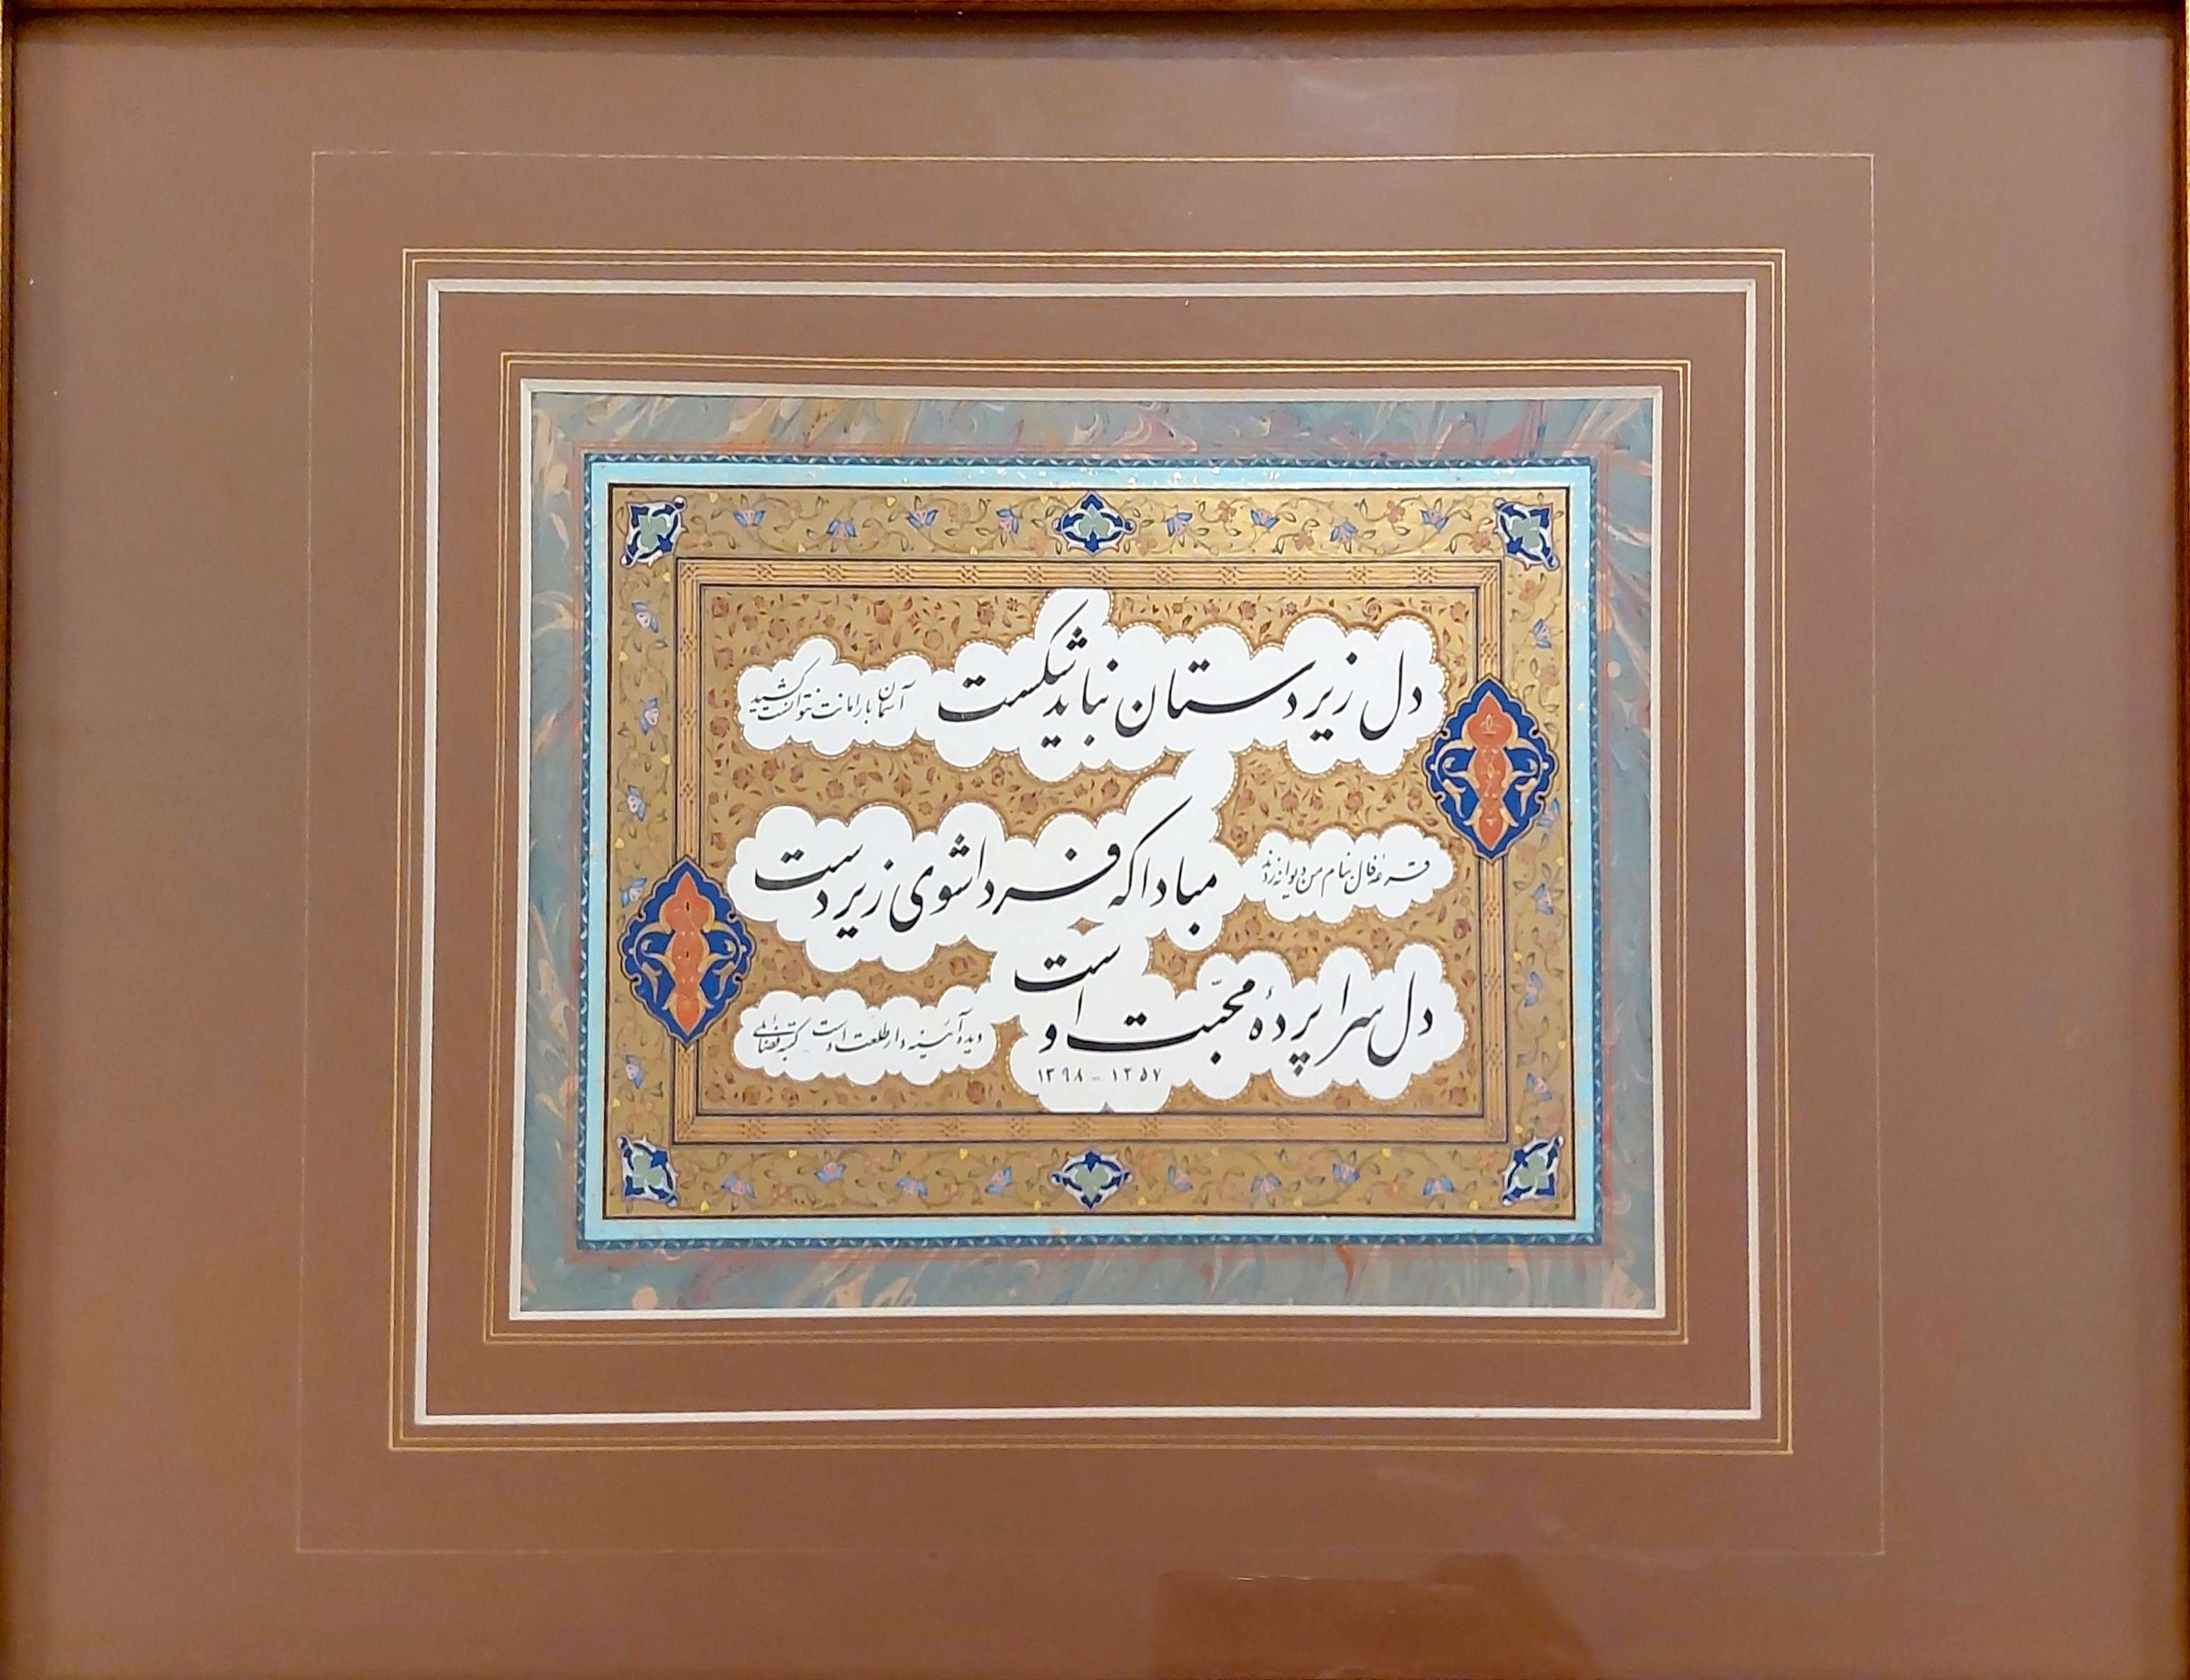 دل زیردستان نباید شکست آسمان بار امانت نتوانست کشید
قرعهٔ فال بنام من دیوانه زدند مبادا که فردا شوی زیردست
دل سراپردهٔ محبّت اوست دیده آئینه‌دار طلعت اوست کتبه فضائلی
۱۳۹۸ - ۱۳۵۷